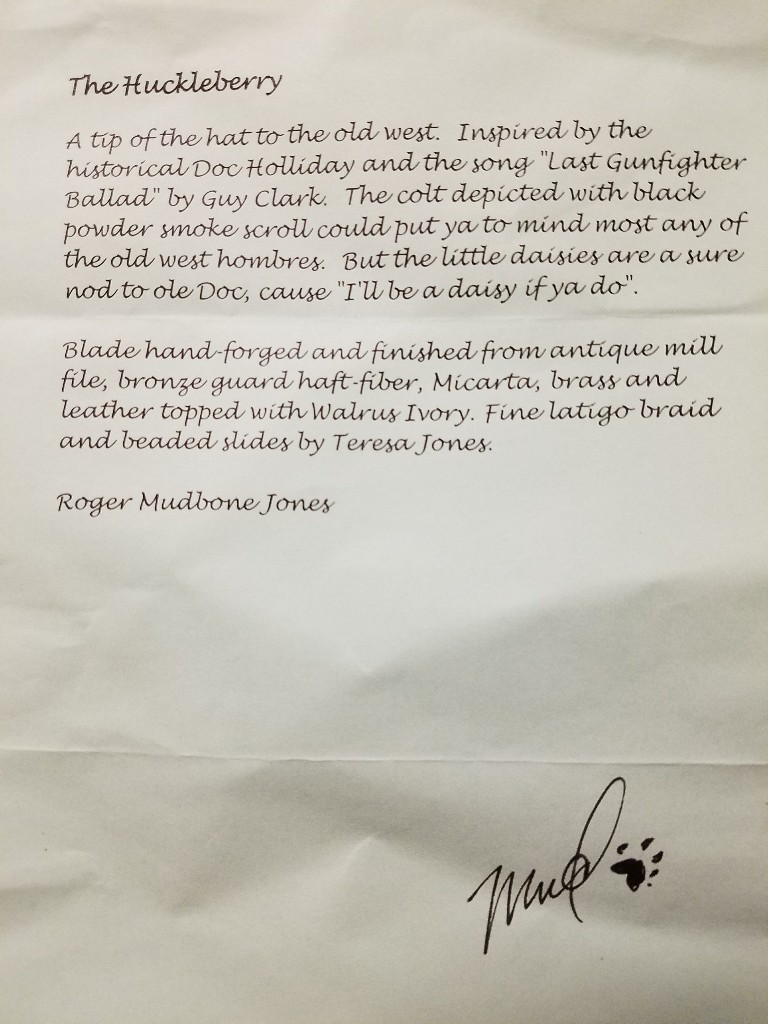 The Huckleberry
A tip of the hat to the old west. Inspired by the
historical Doc Holliday and the song "Last Gunfighter
Ballad" by Guy Clark. The colt depicted with black
powder smoke scroll could put ya to mind most any of
the old west hombres. But the little daisies are a sure
nod to ole Doc, cause "I'll be a daisy if ya do".
Blade hand-forged and finished from antique mill
file, bronze guard haft-fiber, Micarta, brass and
leather topped with Walrus Ivory. Fine latigo braid
and beaded slides by Teresa Jones.
Roger Mudbone Jones
Mud